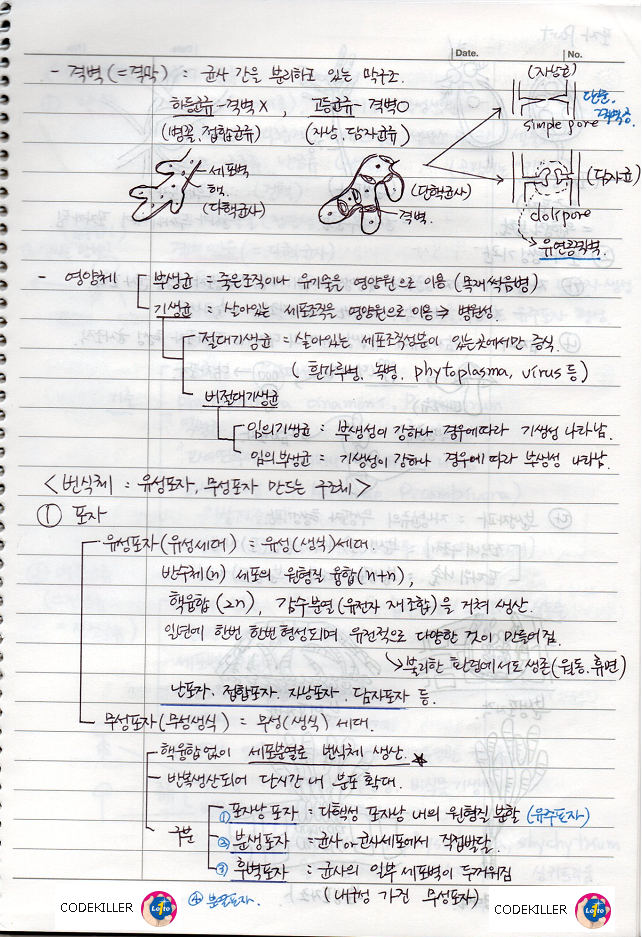 Date. No.
- 격벽(=격막) : 균사 간을 분리하고 있는 막구조.
하등균류-격벽X, 고등균류-격벽O
(병꼴, 접합균류) (자낭, 담자균류)
(자낭균)
단순
격벽공
simple pore
세포벽
핵
(다핵균사)
(단핵균사)
격벽.
(담자균)
doli pore
유연공격벽
- 영양체
부생균 : 죽은조직이나 유기물을 영양원으로 이용 (목재썩음병)
기생균 : 살아있는 세포조직을 영양원으로 이용 ⇒ 병원성.
절대기생균 = 살아있는 세포조직성분이 있는곳에서만 증식.
(흰가루병, 녹병, phytoplasma, virus 등)
비절대기생균
임의기생균 = 부생성이 강하나 경우에따라 기생성 나타남.
임의부생균 = 기생성이 강하나 경우에 따라 부생성 나타남.
<번식체 : 유성포자, 무성포자 만드는 구조체>
① 포자
유성포자(유성세대) = 유성(생식)세대.
반수체(n) 세포의 원형질 융합(n+n),
핵융합(2n), 감수분열(유전자 재조합)을 거쳐 생산.
일년에 한번 한번 형성되며 유전적으로 다양한 것이 만들어짐.
불리한 환경에서도 생존(월동, 휴면)
난포자, 접합포자, 자낭포자, 담자포자 등.
무성포자(무성생식) = 무성(생식) 세대.
핵융합 없이 세포분열로 번식체 생산.
반복생산되어 단시간 내 분포 확대.
구분
① 포자낭 포자 : 다핵성 포자낭 내의 원형질 분할 (유주포자)
② 분생포자 = 균사 or 균사세포에서 직접발달.
③ 후벽포자 = 균사의 일부 세포벽이 두꺼워짐
(내구성 가진 무성포자)
④ 분열포자.
CODEKILLER Lotto
CODEKILLER Lotto